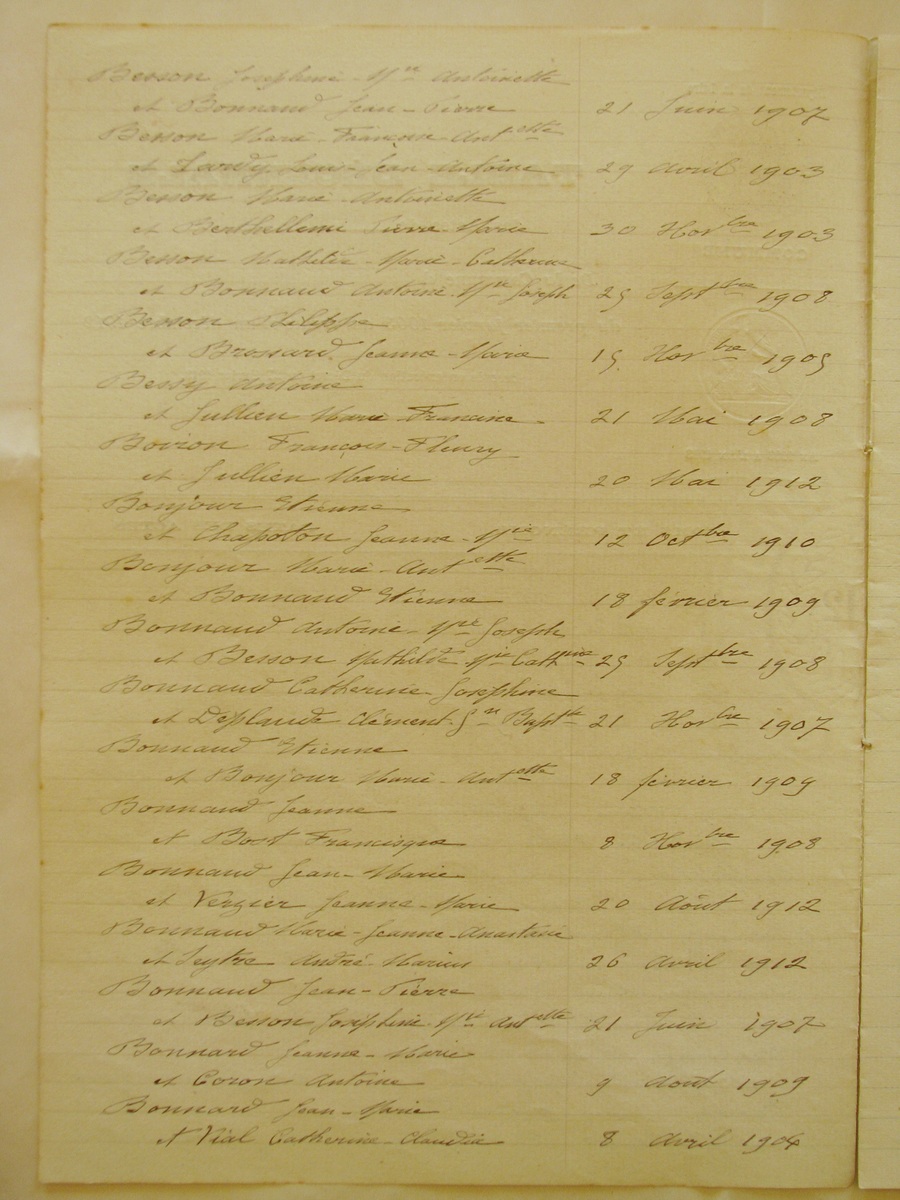 Besson Joséphine-Mie Antoinette
et Bonnaud Jean-Pierre 21 Juin 1907
Besson Marie-Françoise Antette
et Louis-Jean-Antoine 29 avril 1903
Besson Marie-Antoinette
et Berthellemi Pierre-Marie 30 Novbre 1903
Besson Mathilde-Marie-Catherine
et Bonnaud Antoine-Mie Joseph 25 Septbre 1908
Besson Philippe
et Brossard Jeanne-Marie 15 Novbre 1905
Bessy Antoine
et Jullien Marie Francine 21 Mai 1908
Boiron François-Fleury
et Jullien Marie 20 Mai 1912
Bonjour Etienne
et Chapoton Jeanne-Mie 12 Octbre 1910
Bonjour Marie-Antette
et Bonnaud Etienne 18 février 1909
Bonnaud Antoine-Mie Joseph
et Besson Mathilde Mie Cathrine 25 Septbre 1908
Bonnaud Catherine-Joséphine
et Desplaude Clément-Jn Baptte 21 Novbre 1907
Bonnaud Etienne
et Bonjour Marie-Antette 18 février 1909
Bonnaud Jeanne
et Bost Francisque 8 Novbre 1908
Bonnaud Jean-Marie
et Verzier Jeanne-Marie 20 Août 1912
Bonnaud Marie-Jeanne-Anastasie
et Seytre André-Marius 26 avril 1912
Bonnaud Jean-Pierre
et Besson Joséphine Mie Antette 21 Juin 1907
Bonnard Jeanne-Marie
et Coron Antoine 9 Août 1909
Bonnard Jean-Marie
et Vial Catherine-Claudia 8 avril 1904